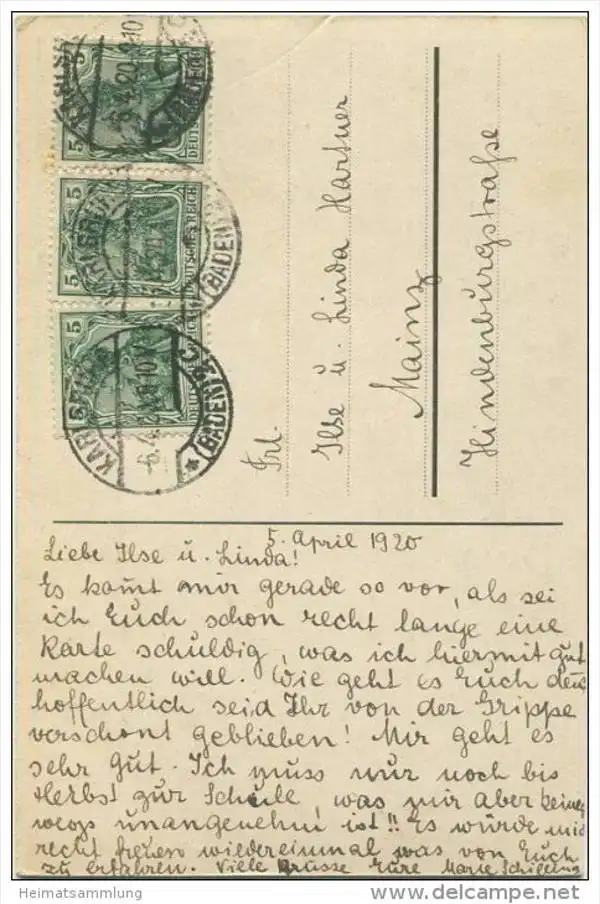 Frl.
Ilse u. Linda Hartner
Mainz
Hindenburgstraße
5. April 1920
Liebe Ilse u. Linda!
Es kom̄t mir gerade so vor, als sei
ich Euch schon recht lange eine
Karte schuldig, was ich hiermit gut
machen will. Wie geht es Euch denn
hoffentlich seid Ihr von der Grippe
verschont geblieben! Mir geht es
sehr gut. Ich muss nur noch bis
Herbst zur Schule, was mir aber keines
wegs unangenehm ist!! Es würde mich
recht freuen wiedereinmal was von Euch
zu erfahren. Viele Grüsse Eure Marie
5 DEUTSCHES REICH
5 DEUTSCHES REICH
5 DEUTSCHES REICH
KARLSRUHE (BADEN)
-6.4.20
Heimatsammlung
delcampe.net